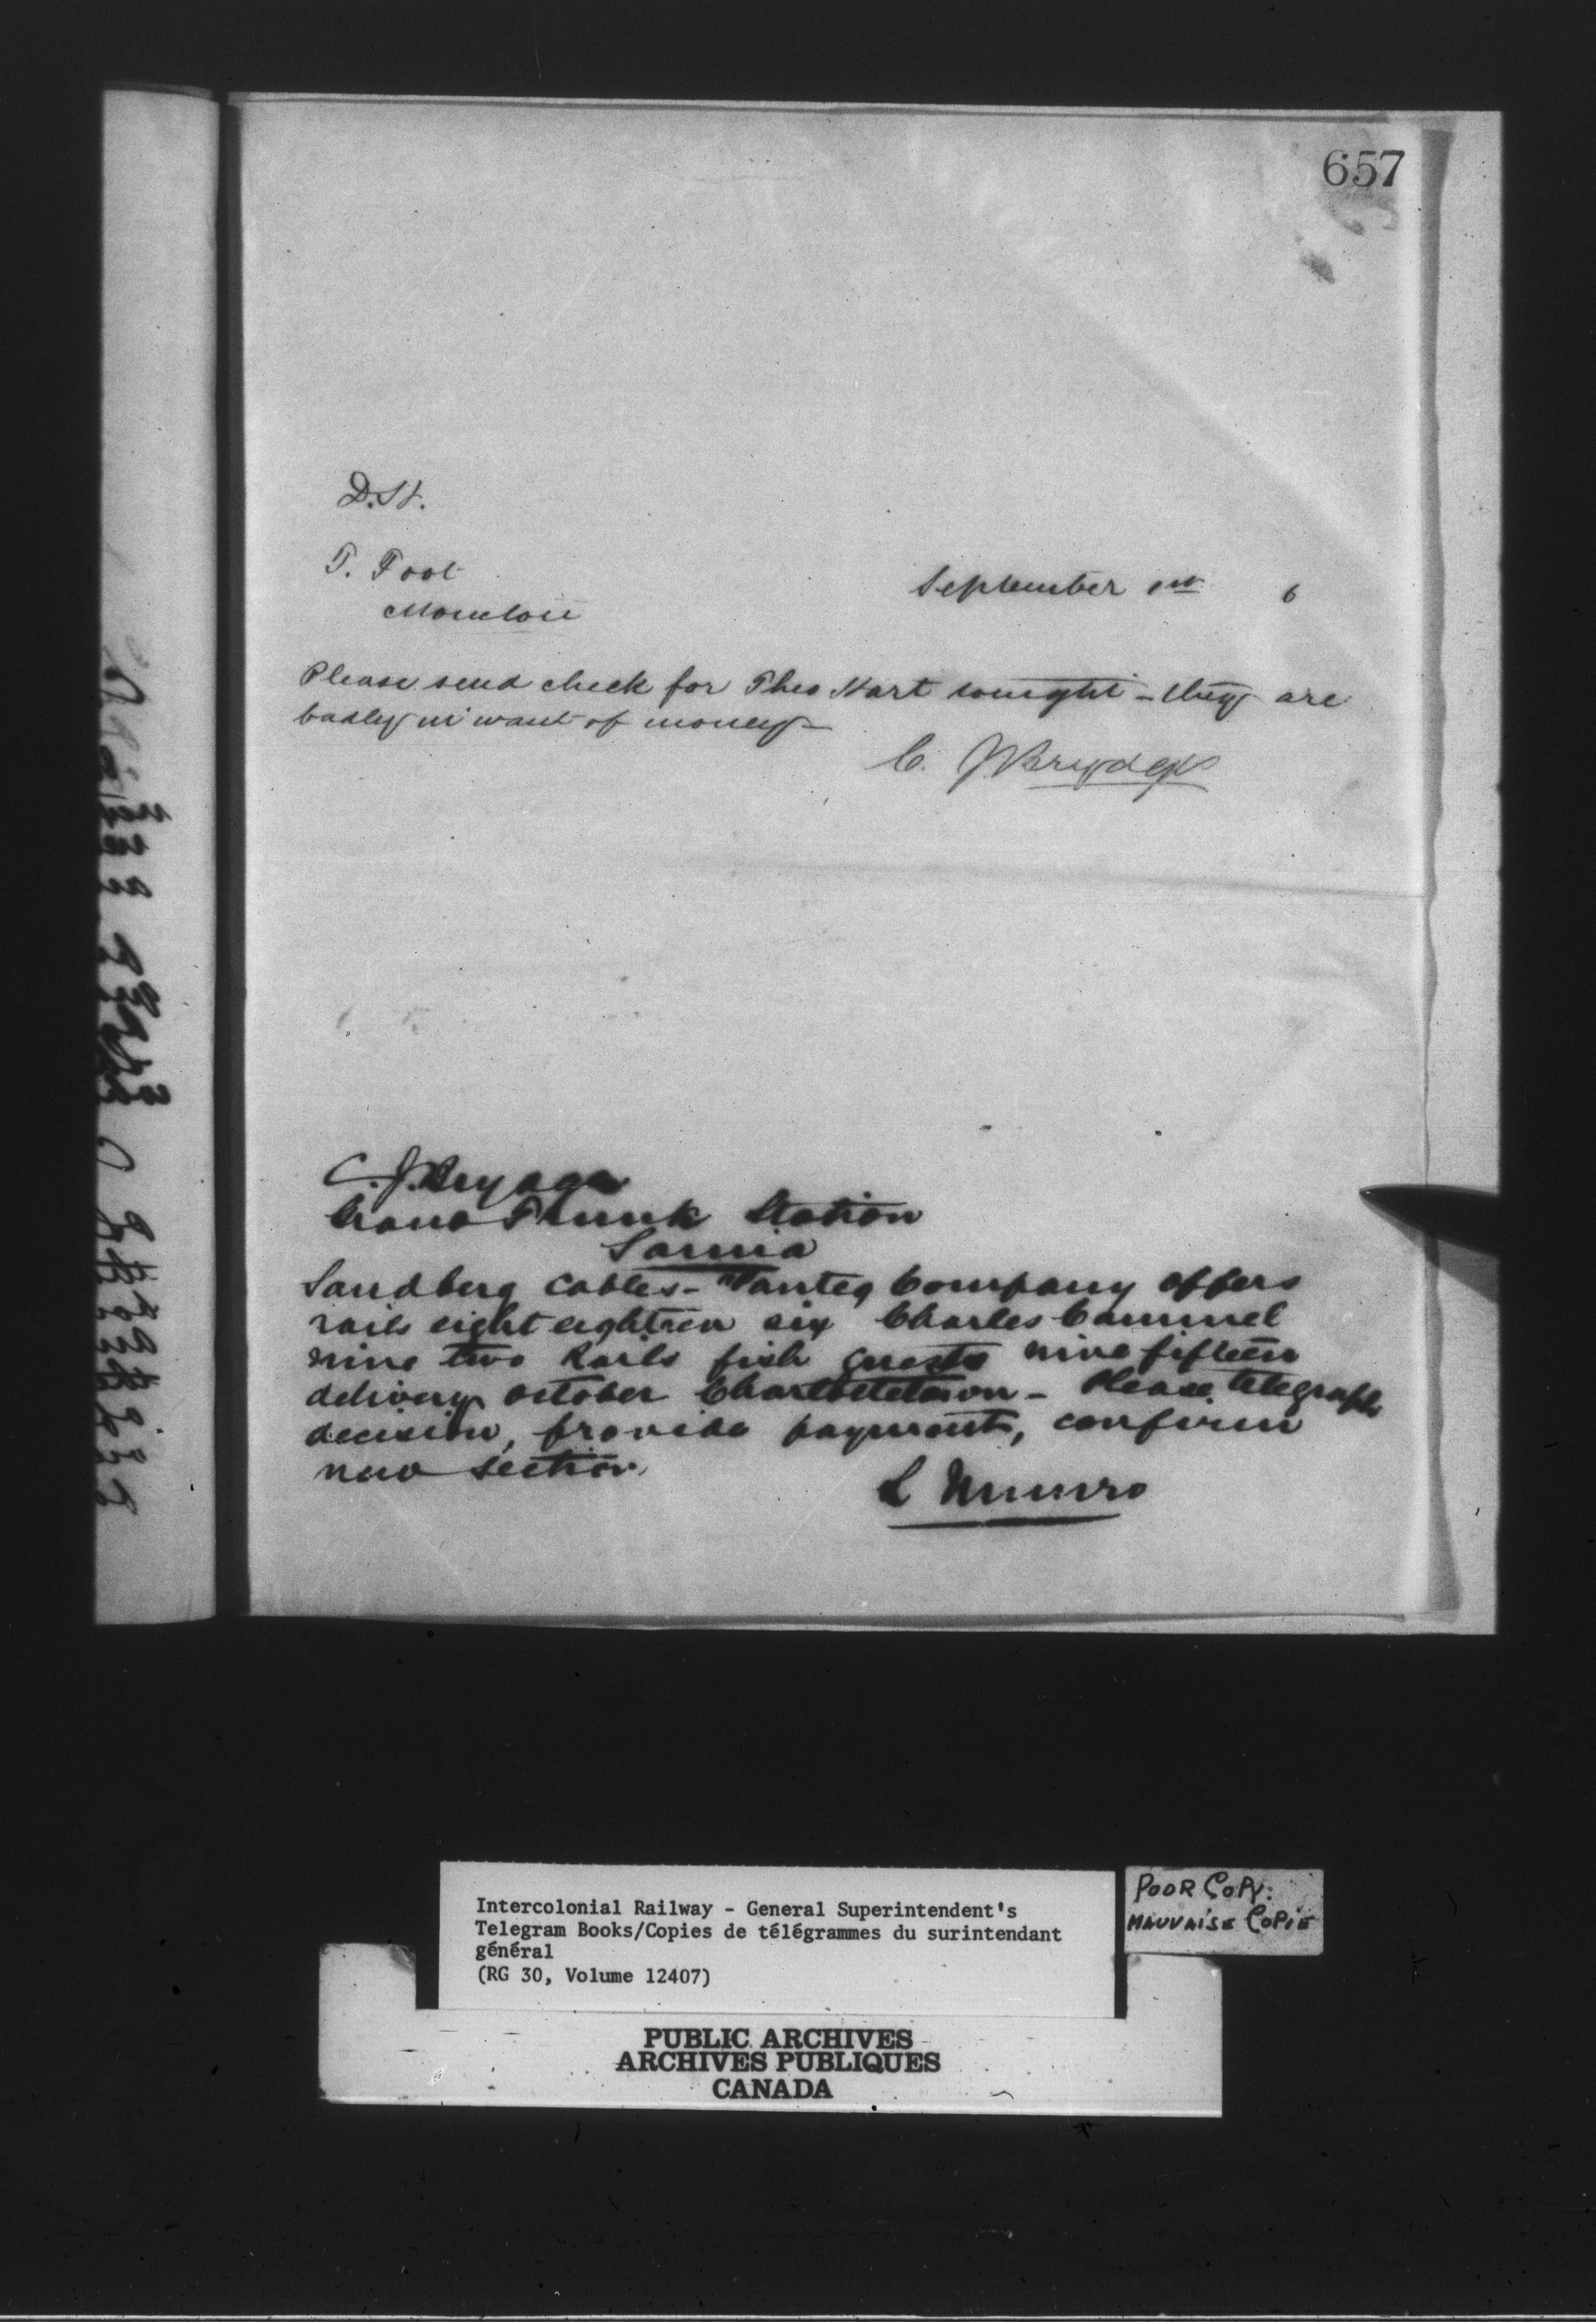 657
T. Foot
Moncton
September 1st 6
Please send check for Theo Hart tonight - they are
badly in want of money -
C. J. Brydges
C. J. Brydges
Grand Trunk Station
Sarnia
Sandberg Cables - Company offers
rails eight eighteen six Charles Cammel
nine two Rails fish Guests nine fifteen
delivery October Charlottetown - Please telegraph
decision, provide payments, confirm
new section
L Munro
Intercolonial Railway - General Superintendent's
Telegram Books/Copies de télégrammes du surintendant
général
(RG 30, Volume 12407)
POOR COPY:
MAUVAISE COPIE
PUBLIC ARCHIVES
ARCHIVES PUBLIQUES
CANADA